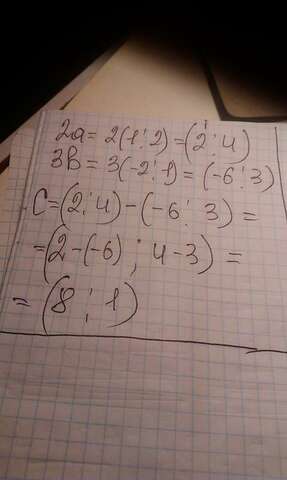 2a = 2(1;2) = (2;4)
3B = 3(-2;1) = (-6;3)
C = (2;4) - (-6;3) =
= (2-(-6);4-3) =
= (8;1)